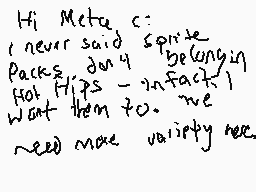 Hi Meta c:
i never said sprite
Packs don4 belong in
Hot Hips - infact, I
want them to. we
need more variety here.